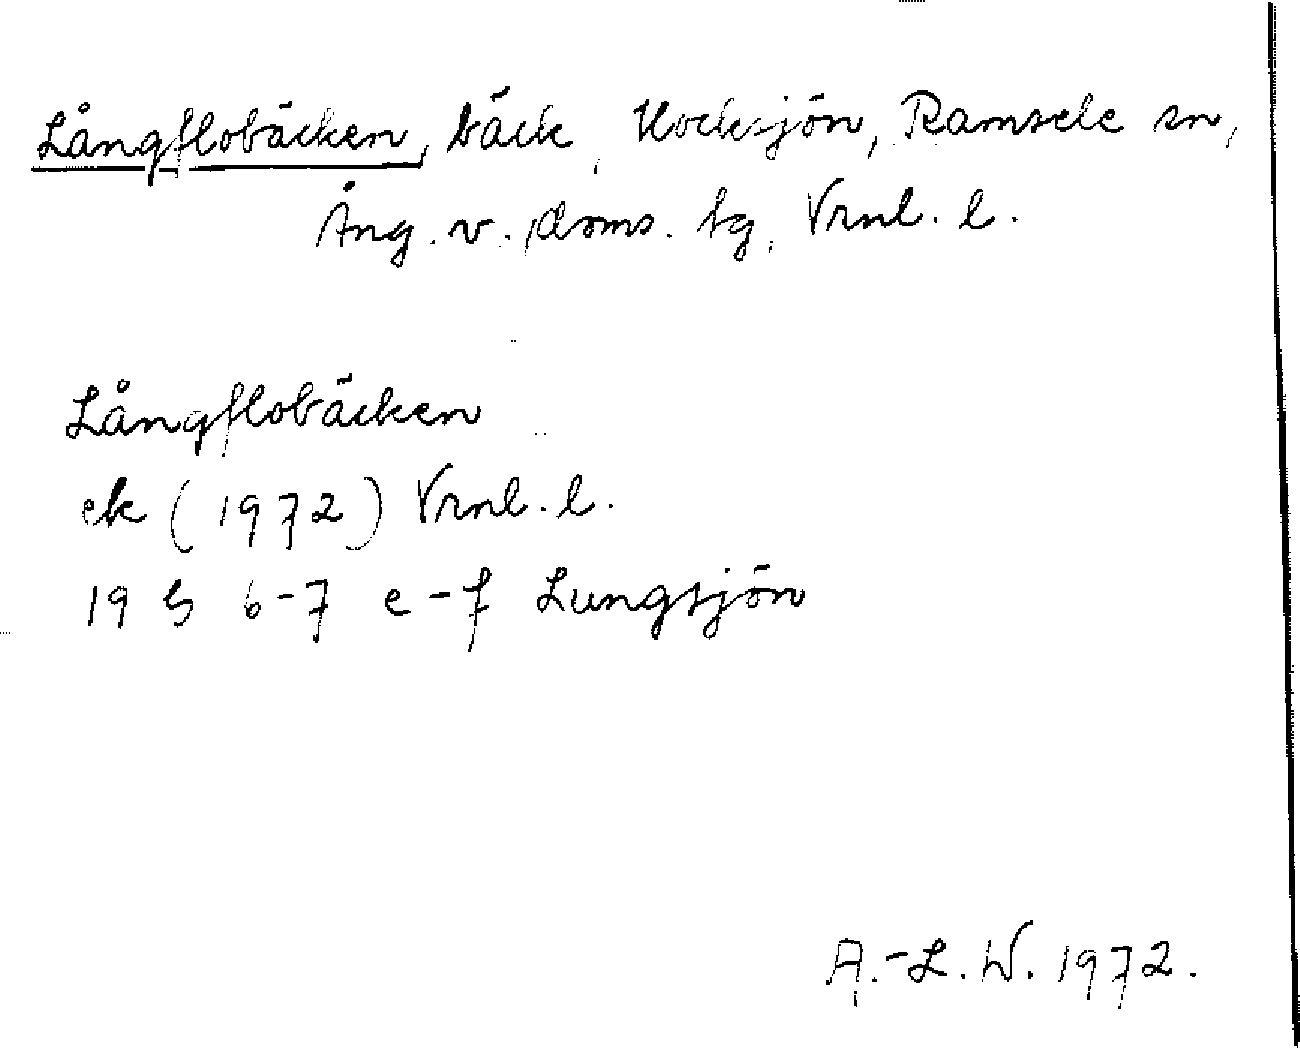 Långflobäcken, bäck, Hocksjön, Ramsele sn,
Ång. v. doms. tg, Vrnl. l.
Långflobäcken
ek (1972) Vrnl. l.
19 G 6-7 e-f Lungsjön
A.-L. W. 1972.